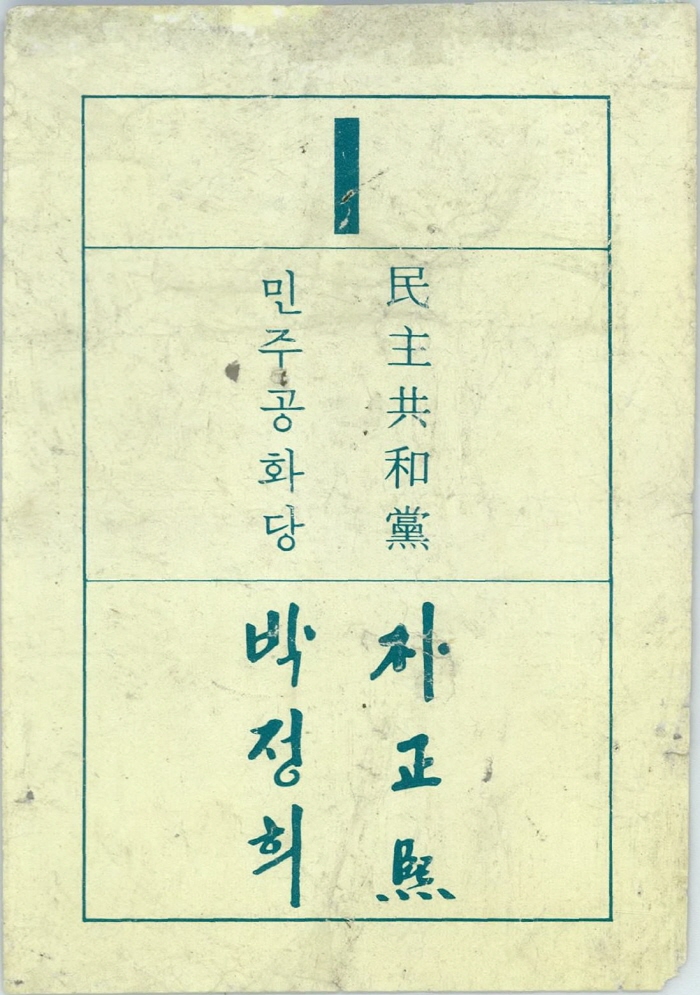 I
民主共和黨
민주공화당
朴正熙
박정희